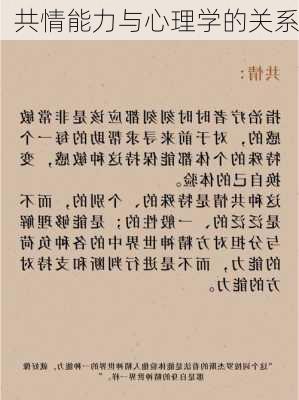 共情能力与心理学的关系
共情：
指治疗者时时刻刻都应该是非常敏
感的，对于前来寻求帮助的每一个
特殊的个体都能保持这种敏感，变
换自己的体验。
这种共情是特殊的、个别的，而不
是泛泛的、一般性的；是能够理解
与分担对方精神世界中的各种负荷
的能力，而不是进行判断和支持对
方的能力。
“这个词按罗杰斯的看法是能体验他人精神世界的一种能力，就好像
那是自身的精神世界一样。”